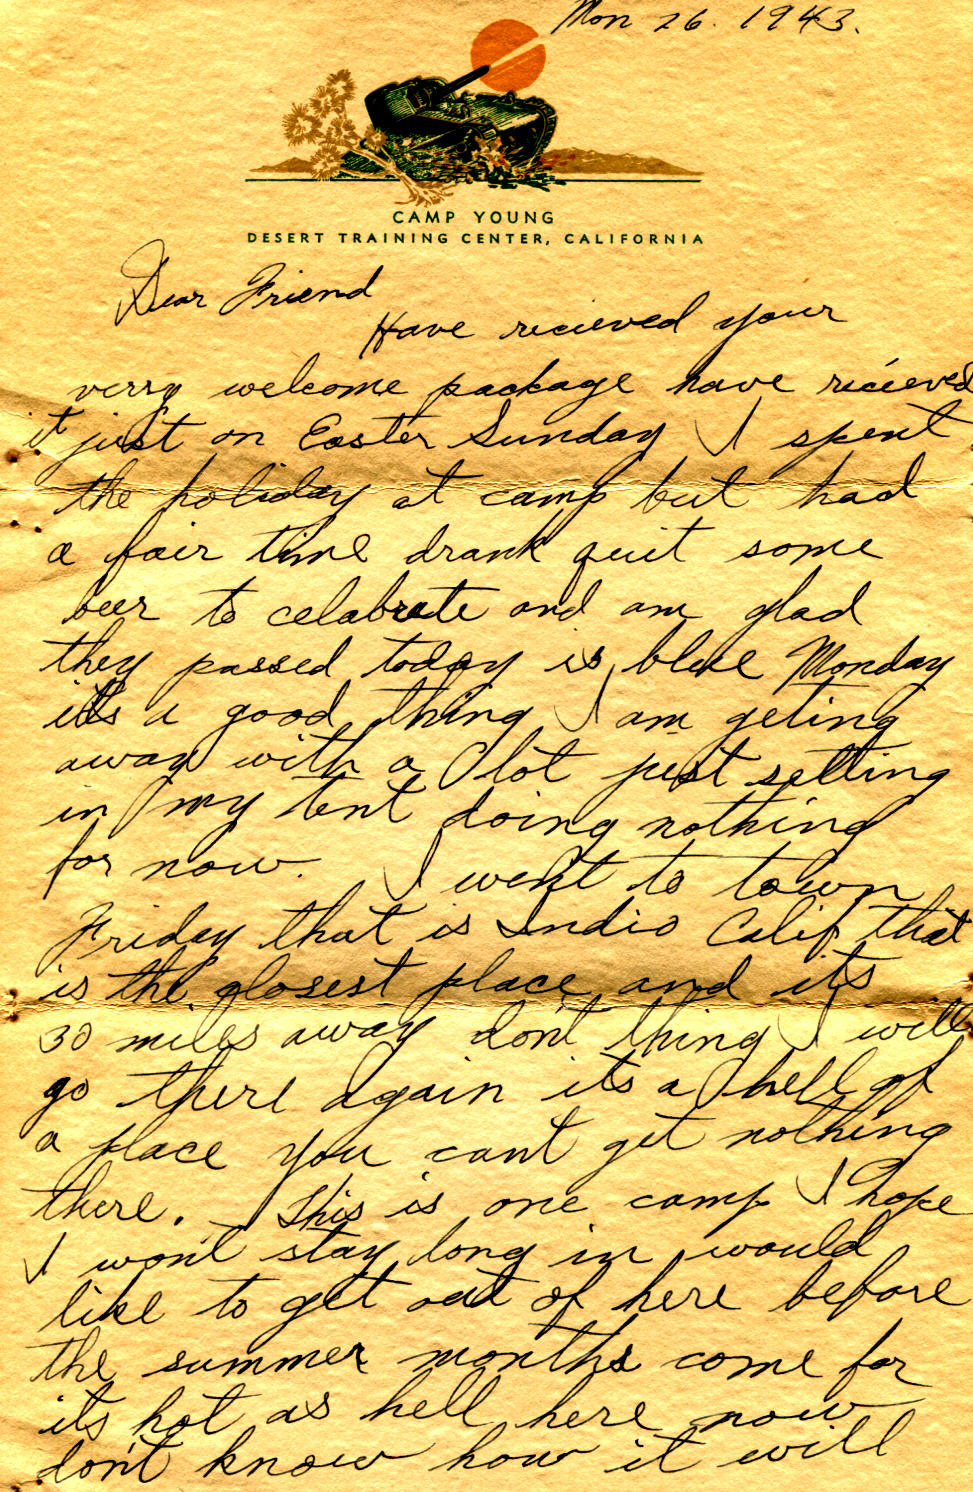 Mon 26. 1943.
CAMP YOUNG
DESERT TRAINING CENTER, CALIFORNIA
Dear Friend
Have recieved your
verry welcome package have recieved
it just on Easter Sunday I spent
the holiday at camp but had
a fair time drank quit some
beer to celabrate and am glad
they passed today is blue Monday
its a good thing I am geting
away with a lot just setting
in my tent doing nothing
for now. I went to town
Friday that is Indio Calif that
is the closest place and its
30 miles away don't thing I will
go there again its a hell of
a place you cant get nothing
there. This is one camp I hope
I wont stay long in would
like to get out of here before
the summer months come for
its hot as hell here now
don't know how it will